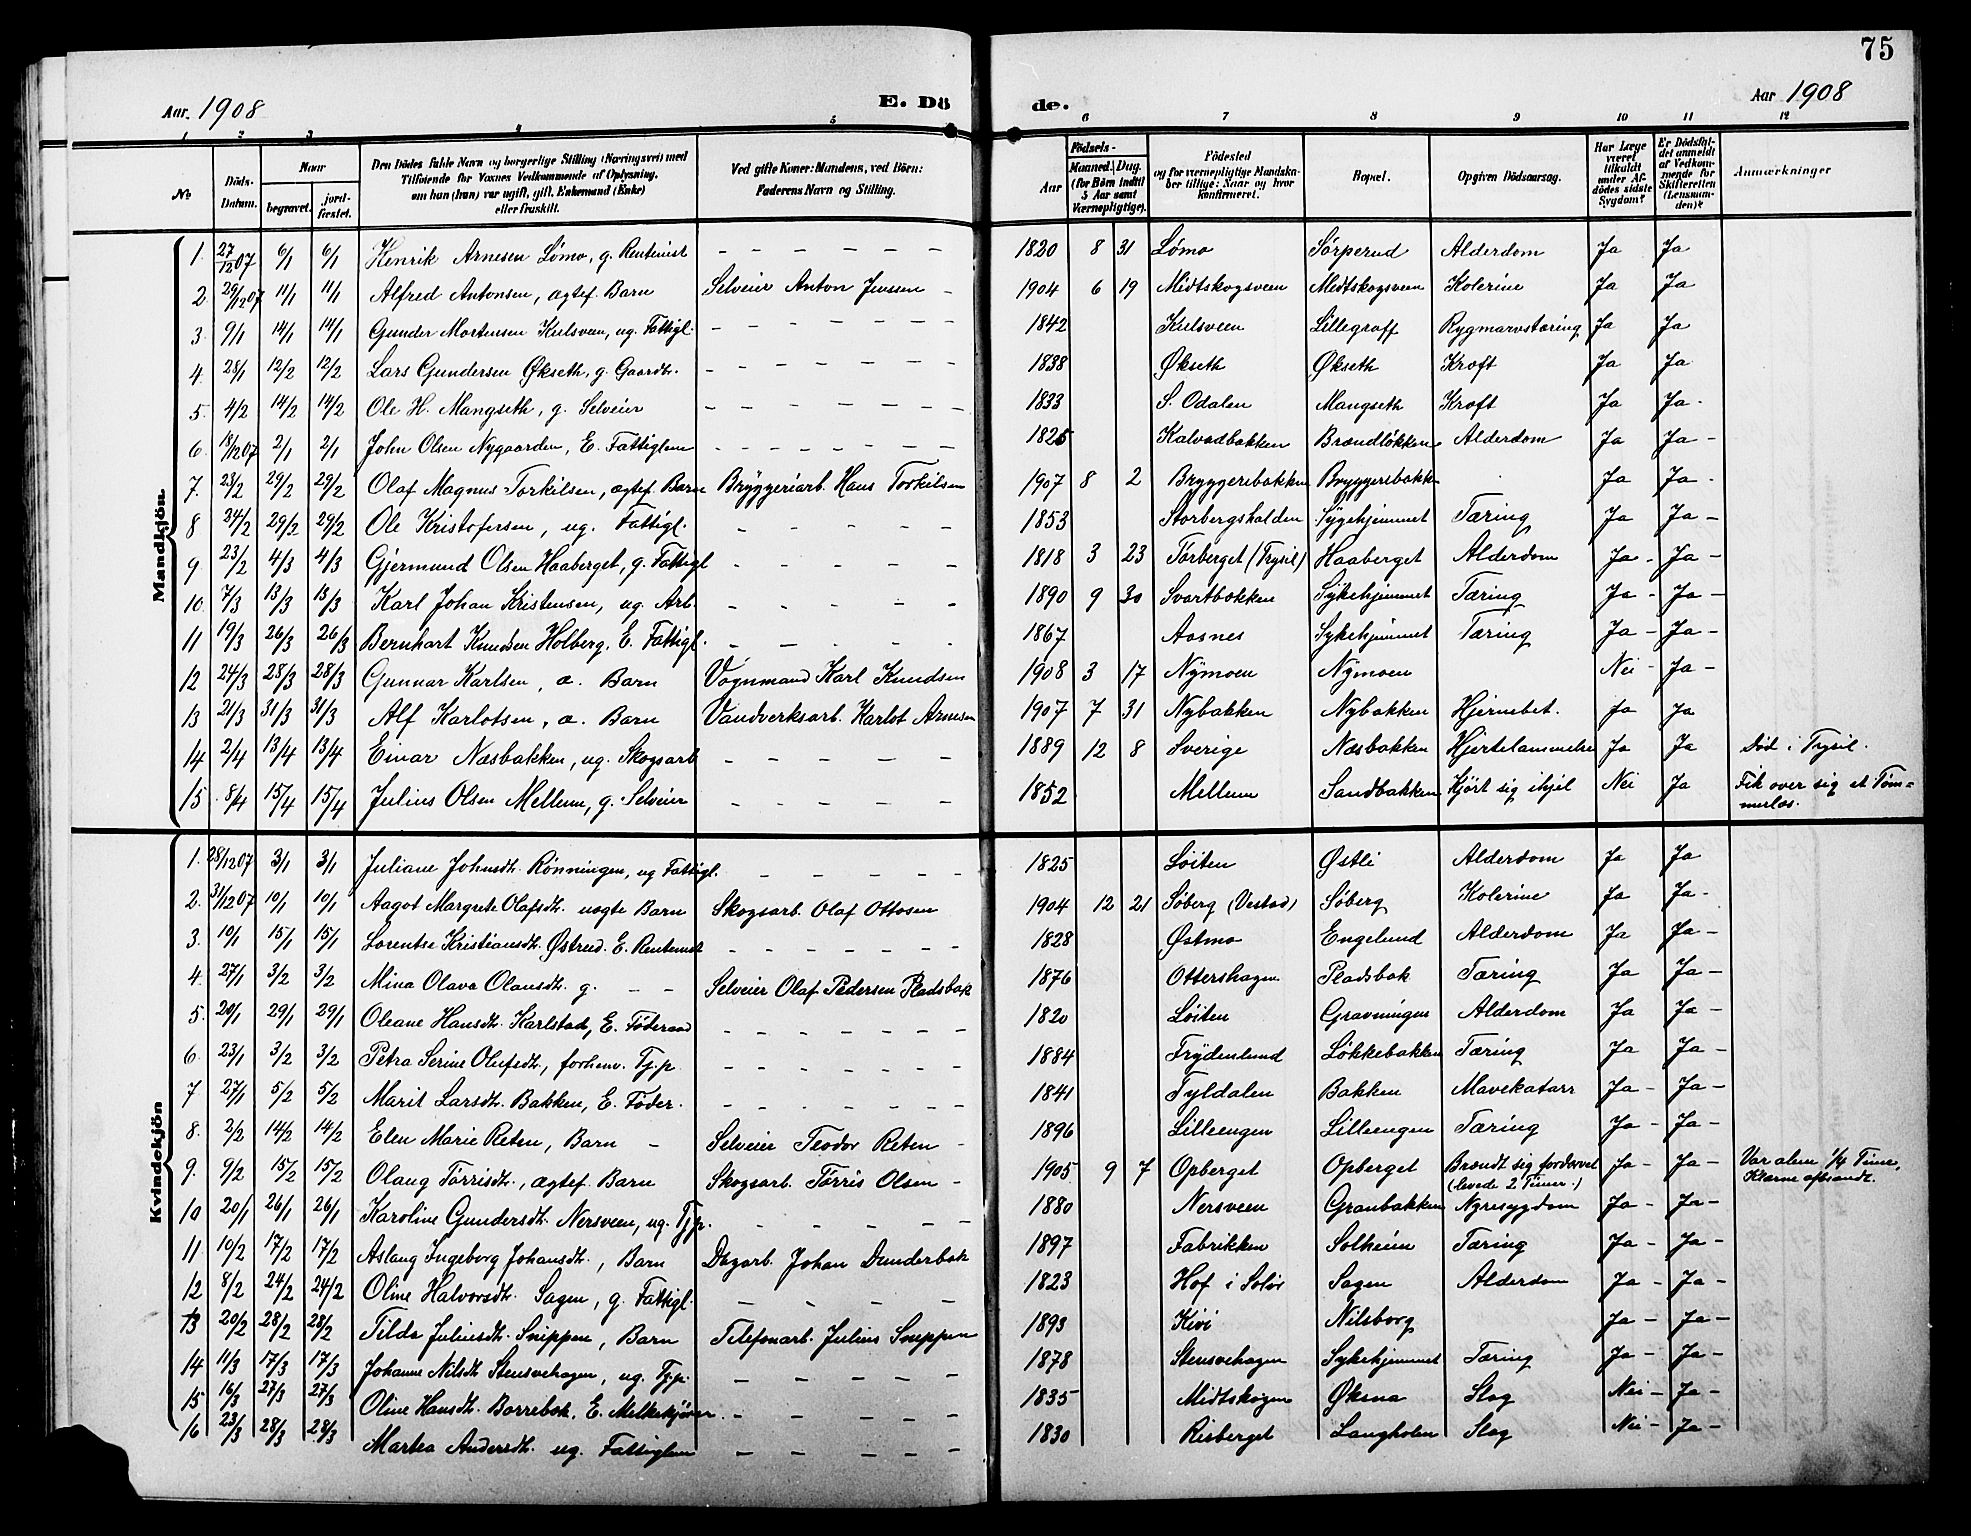 75
Aar. 1908
E. Dö
de.
Aar 1908
1 2 3 4 5 6 7 8 9 10 11 12
No.
Döds-Datum.
Naar
begravet.
jordfæstet.
Den Dödes fulde Navn og borgerlige Stilling (Næringsvei) med
Tilføiende for Voxnes Vedkommende af Oplysning,
om han (hun) var ugift, gift, Enkemand (Enke)
eller fraskilt.
Ved gifte Koner: Mandens, ved Börn:
Faderens Navn og Stilling.
Födsels-
Aar
Maaned. Dag.
(for Børn indtil
5 Aar samt
Værnepligtige).
Födested
og for værnepligtige Mandskaber tillige: Naar og hvor
konfirmeret.
Bopæl.
Opgiven Dödsaarsag.
Har Læge
været
tilkaldt
under Afdödes sidste
Sygdom?
Er Dödsfaldet anmeldt
af Vedkommende for
Skifteretten
(Lensmanden)?
Anmærkninger
Mandkjön.
1. 27/12 07 6/1 6/1 Henrik Arnesen Lömo, g. Rentenist — — — — — 1820 8 31 Lömo Sörperud Alderdom Ja Ja
2. 29/12 07 11/1 11/1 Alfred Antonsen, ægtef. Barn Selveier Anton Jenssen — 1904 6 19 Midtskogsveen Midtskogsveen Kolerine Ja Ja
3. 9/1 14/1 14/1 Gunder Mortensen Kulsveen, ug. Fattigl. — — — — — — 1842 Kulsveen Lillegraff Rygmarvstæring Ja Ja
4. 28/1 12/2 12/2 Lars Gundersen Økseth, g. Gaardbr. — — — — — — 1838 Økseth Økseth Kræft Ja Ja
5. 4/2 14/2 14/2 Ole H. Mangseth, g. Selveier — — — — — — 1833 S. Odalen Mangseth Kræft Ja Ja -
6. 18/12 07 2/1 2/1 John Olsen Nygaarden, E. Fattiglem — — — — — — 1825 Kalvadbakken Brændlökken Alderdom Ja Ja -
7. 23/2 29/2 29/2 Olaf Magnus Torkilsen, ægtef. Barn Bryggeriarb. Hans Torkilsen 1907 8 2 Bryggeribakken Bryggeribakk. Ja Ja -
8 24/2 29/2 29/2 Ole Kristofersen, ug. Fattigl. — — — — — 1853 Storbergshalden Sygehjemmet Tæring Ja Ja -
9 23/2 4/3 4/3 Gjermund Olsen Haaberget, g. Fattigl — — — — — 1818 3 23 Törberget (Trysil) Haaberget Alderdom Ja - Ja -
10. 7/3 13/3 13/3 Karl Johan Kristensen, ug. Arb. — — — — — 1890 9 30 Svartbakken Sykehjemmet Tæring Ja - Ja -
11 19/3 26/3 26/3 Bernhart Knudsen Holberg. E. Fattigl. — — — — — 1867 Aasnes Sykehjemmet Tæring Ja - Ja -
12 24/3 28/3 28/3 Gunnar Karlsen, æ. Barn Vognmand Karl Knudsen 1908 3 17 Nymoen Nymoen Nei - Ja -
13 21/3 31/3 31/3 Alf Karlotsen, æ. Barn Vandverksarb. Karlot Arnesen 1907 7 31 Nybakken Nybakken Hjernebet. Ja Ja
14 2/4 13/4 13/4 Einar Næsbakken, ug. Skogsarb — — — — — 1889 12 8 Sverige Næsbakken Hjertelammelse Ja Ja Död i Trysil.
15 8/4 15/4 15/4 Julius Olsen Mellem, g. Selveier — — — — — 1852 Mellem Sandbakken Kjört sig ihjel Nei Ja Fik over sig et Tömmerlæs.
Kvindekjön
1. 28/12 07 3/1 3/1 Juliane Johnsdtr. Rönningen, ug Fattigl. — — — — — 1825 Löiten Østli Alderdom Ja Ja
2. 31/12 07 10/1 10/1 Aagot Margrete Olafsdtr. uægte Barn Skogsarb. Olaf Ottosen 1904 12 21 Söberg (Vestad) Söberg Kolerine Ja Ja -
3. 10/1 15/1 15/1 Lorentse Kristiansdtr. Østreed. E. Rentenist — — — — — — 1828 Østmo Engelund Alderdom Ja Ja -
4. 27/1 3/2 3/2 Mina Olava Olausdtr. g. — — Selveier Olaf Pedersen Pladsbak 1876 Ottershagen Pladsbak Tæring Ja Ja -
5. 20/1 29/1 29/1 Oleane Hansdtr. Karlstad, E. Föderaad — — — — — — — 1820 Löiten Gravningen Alderdom Ja Ja -
6. 23/1 3/2 3/2 Petra Serine Olufsdtr., forhenv. Tj.p — — — — — — — 1884 Frydenlund Lökkebakken Tæring Ja Ja -
7 27/1 5/2 5/2 Marit Larsdtr. Bakken, E. Föder. — — — — — — — 1841 Tyldalen Bakken Mavekatarr Ja - Ja -
8. 2/2 14/2 14/2 Elen Marie Reten, Barn — Selveier Teodor Reten - 1896 Lilleengen Lilleengen Tæring Ja - Ja -
9. 9/2 15/2 15/2 Olaug Törrisdtr., ægtef. Barn Skogsarb. Törris Olsen - 1905 9 7 Opberget Opberget Brændt sig fordærvet (levede 2 Timer.) Ja - Ja - Var alene 1/4 Time, Klærne afbrændt.
10 20/1 26/1 26/1 Karoline Gundersdtr. Nersveen, ug. Tj.p. — — — — — 1880 Nersveen Granbakken Nyresygdom Ja - Ja -
11 10/2 17/2 17/2 Aslaug Ingeborg Johansdtr., Barn Dagarb. Johan Dunderbak 1897 Fabrikken Solheim Tæring Ja - Ja -
12 8/2 24/2 24/2 Oline Halvorsdtr. Sagen, g. Fattigl. — — — — — 1823 Hof i Solör Sagen Alderdom Ja - Ja -
13 20/2 28/2 28/2 Tilda Juliusdtr. Snippen, Barn Telefonarb. Julius Snippen 1893 Kivi Nilsborg Ja - Ja -
14 11/3 17/3 17/3 Johanne Nilsdtr Stensvehagen, ug. Tj.p. — — — — — 1878 Stensvehagen Sykehjemmet Tæring Ja - Ja -
15 16/3 27/3 27/3 Oline Hansdtr. Borrebak. E. Melkekjörer. — — — — — 1835 Midtskogen Øksna Slag Nei - Ja -
16 23/3 28/3 28/3 Martea Andersdtr. ug. Fattiglem — — — — — 1830 Risberget Langholen Slag Nei - Ja -